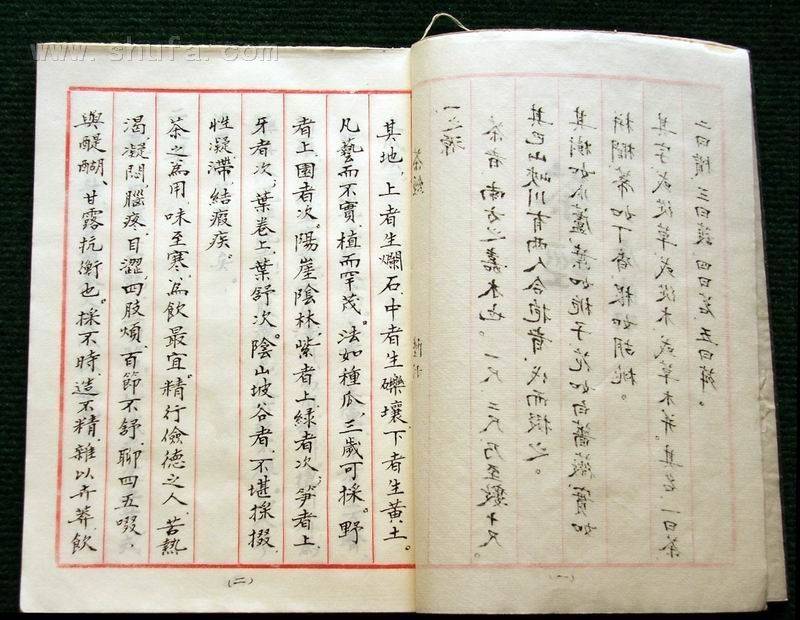 www.shufa.com
茶經
一之源
茶者、南方之嘉木也。一尺、二尺乃至數十尺。
其巴山峽川有兩人合抱者、伐而掇之。
其樹如瓜蘆、葉如梔子、花如白薔薇、實如
栟櫚、蒂如丁香、根如胡桃。
其字或從草、或從木、或草木并。其名一曰茶
二曰檟、三曰蔎、四曰茗、五曰荈。
(一)
其地、上者生爛石、中者生礫壤、下者生黃土。
凡藝而不實、植而罕茂。法如種瓜、三歲可採。野
者上、園者次。陽崖陰林、紫者上、綠者次、笋者上、
牙者次、葉卷上、葉舒次。陰山坡谷者、不堪採掇、
性凝滯、結瘕疾。
茶之為用、味至寒、為飲最宜。精行儉德之人、若熱
渴、凝悶、腦疼、目澀、四肢煩、百節不舒、聊四五啜、
與醍醐、甘露抗衡也。採不時、造不精、雜以卉莽、飲
(二)